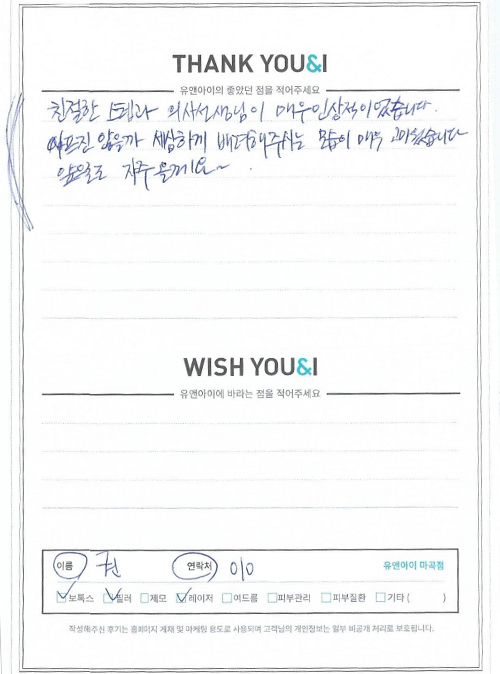 THANK YOU&I
유앤아이의 좋았던 점을 적어주세요
친절한 스텝과 의사선생님이 매우 인상적이었습니다.
아프진 않을까 세심하게 배려해주시는 모습이 매우 고마웠습니다
앞으로도 자주 올게요~
WISH YOU&I
유앤아이에 바라는 점을 적어주세요
이름 권 연락처 010 유앤아이 마곡점
보톡스 필러 제모 레이저 여드름 피부관리 피부질환 기타 ( )
작성해주신 후기는 홈페이지 게재 및 마케팅 용도로 사용되며 고객님의 개인정보는 일부 비공개 처리로 보호됩니다.